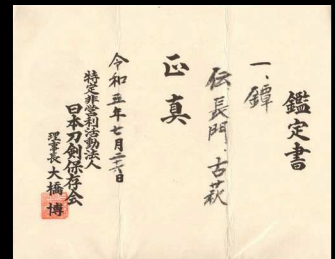 鑑定書
一、鐔
伝長門、古萩
正真
令和五年七月二六日
特定非営利活動法人
日本刀剣保存会
理事長 大橋 博